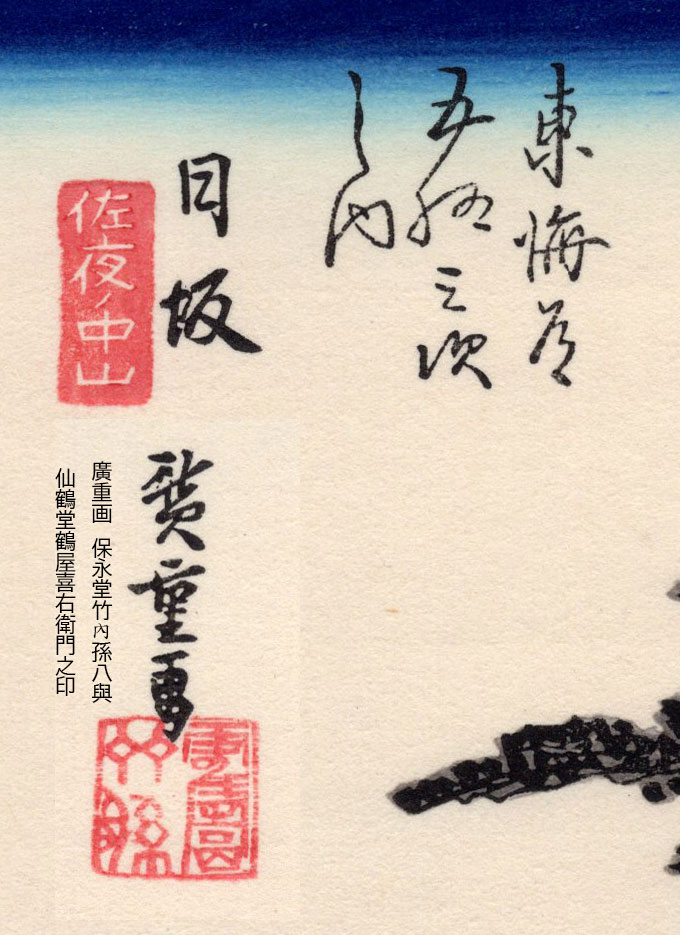 東海道
五拾三次
之内
日坂
佐夜ノ中山
廣重画
廣重画 保永堂竹內孫八與
仙鶴堂鶴屋喜右衛門之印